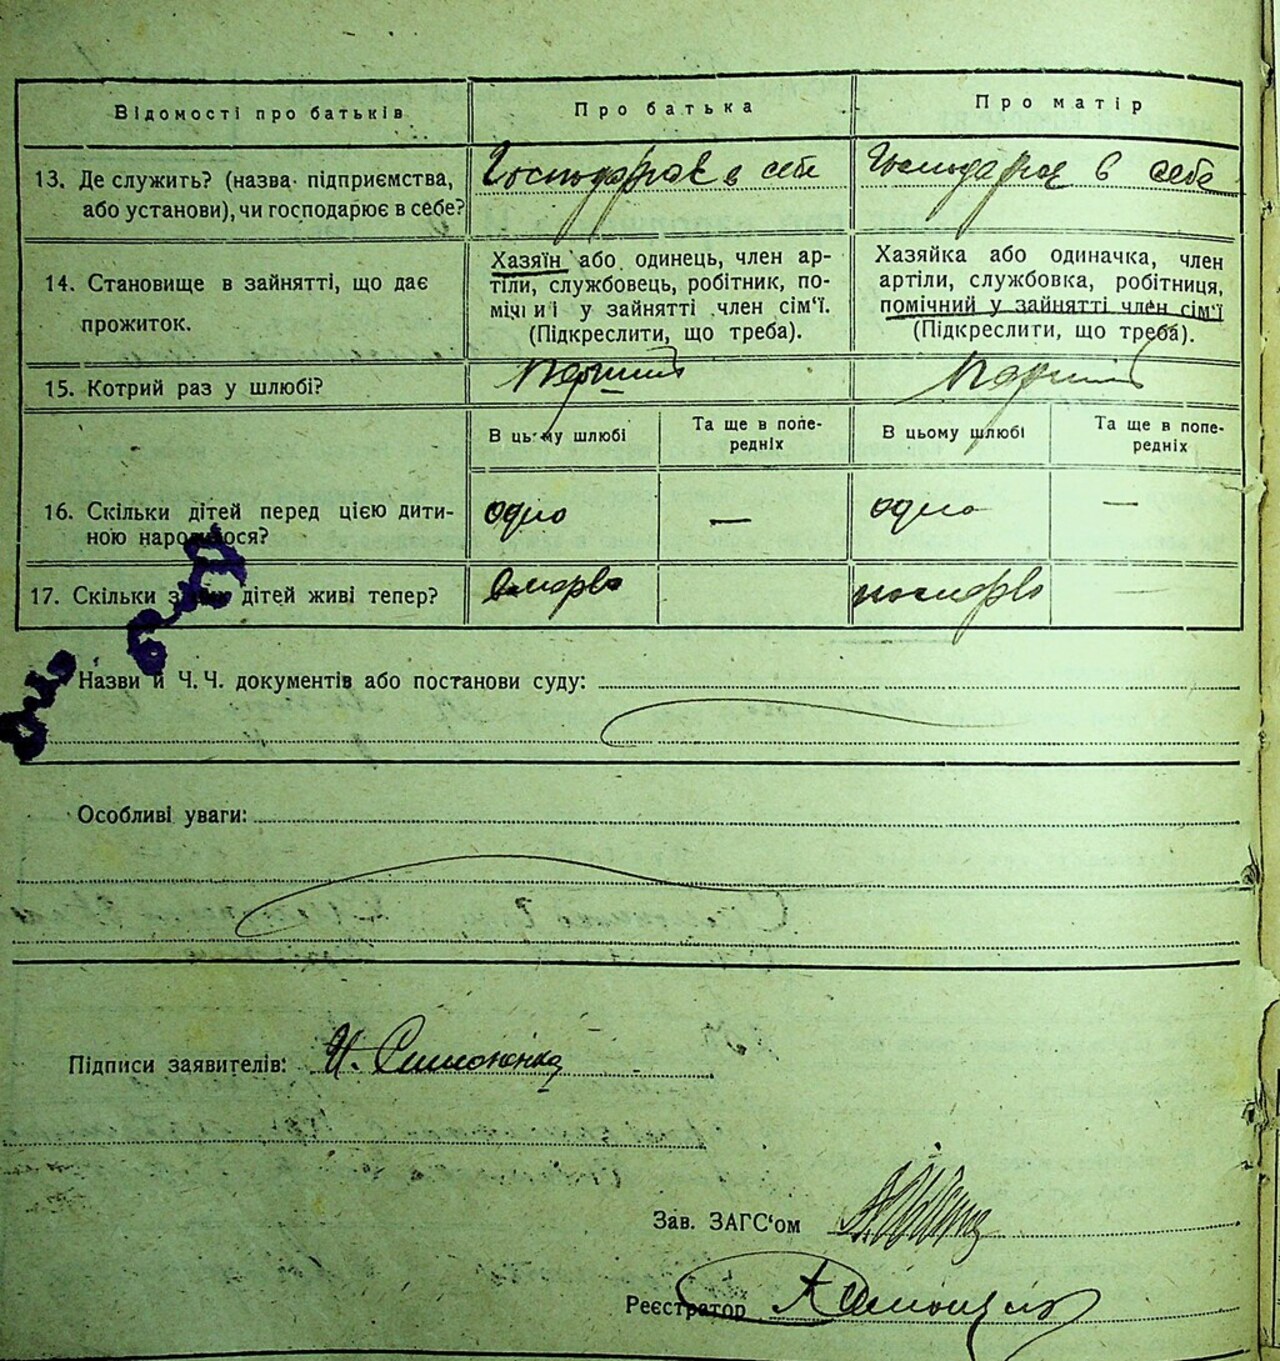 Відомості про батьків
Про батька
Про матір
13. Де служить? (назва підприємства,
або установи), чи господарює в себе?
Господарює в себе
Господарює в себе
14. Становище в зайнятті, що дає
прожиток.
Хазяїн або одинець, член ар-
тіли, службовець, робітник, по-
мічний у зайнятті член сім'ї.
(Підкреслити, що треба).
Хазяйка або одиначка, член
артіли, службовка, робітниця,
помічний у зайнятті член сім'ї
(Підкреслити, що треба).
15. Котрий раз у шлюбі?
Перший
Перший
В цьому шлюбі
Та ще в попе-
редніх
В цьому шлюбі
Та ще в попе-
редніх
16. Скільки дітей перед цією дити-
ною народилося?
одно
—
одно
—
17. Скільки з них дітей живі тепер?
вмерло
Назви й Ч. Ч. документів або постанови суду:
Особливі уваги:
Підписи заявителів: И. Симоненко
Зав. ЗАГС'ом
Реєстратор